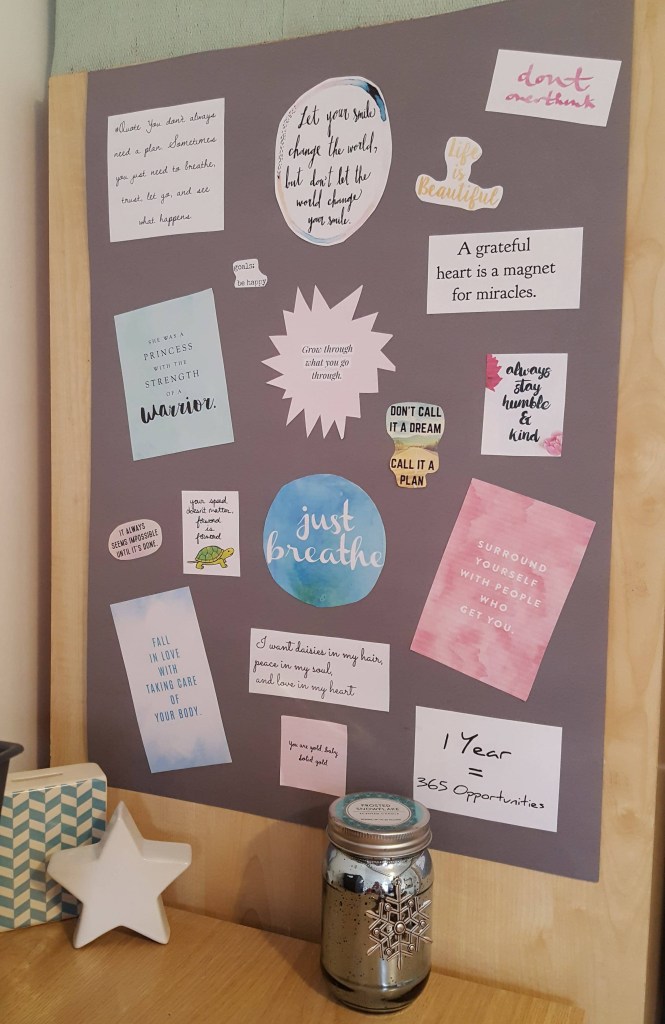 #Quote You don't always
need a plan. Sometimes
you just need to breathe,
trust, let go, and see
what happens.
Let your smile
change the world,
but don't let the
world change
your smile.
dont
overthink
Life
is
Beautiful
goals:
be happy
A grateful
heart is a magnet
for miracles.
SHE WAS A
PRINCESS
WITH THE
STRENGTH
OF A
warrior.
Grow through
what you go
through.
always
stay
humble
&
kind
DON'T CALL
IT A DREAM
CALL IT A
PLAN
IT ALWAYS
SEEMS IMPOSSIBLE
UNTIL IT'S DONE.
your speed
doesn't matter,
forward
is
forward
just
breathe
SURROUND
YOURSELF
WITH PEOPLE
WHO
GET YOU.
FALL
IN LOVE
WITH
TAKING CARE
OF
YOUR BODY.
I want daisies in my hair,
peace in my soul,
and love in my heart
You are gold baby
Solid gold
1 Year
=
365 Opportunities
FROSTED
SNOWFLAKE